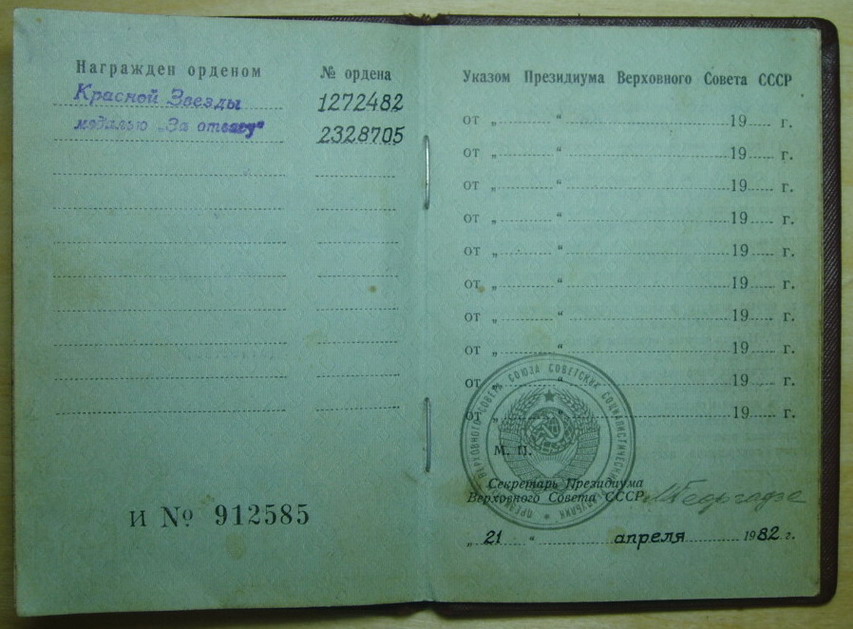 Награжден орденом
№ ордена
Красной Звезды
1272482
медалью „За отвагу“
2328705
И № 912585
Указом Президиума Верховного Совета СССР
от „ “ 19 г.
от „ “ 19 г.
от „ “ 19 г.
от „ “ 19 г.
от „ “ 19 г.
от „ “ 19 г.
от „ “ 19 г.
от „ “ 19 г.
от „ “ 19 г.
от „ “ 19 г.
ВЕРХОВНОГО СОВЕТА СОЮЗА СОВЕТСКИХ СОЦИАЛИСТИЧЕСКИХ
М. П.
Секретарь Президиума
Верховного Совета СССР
МГеоргадзе
„ 21 “ апреля 1982 г.